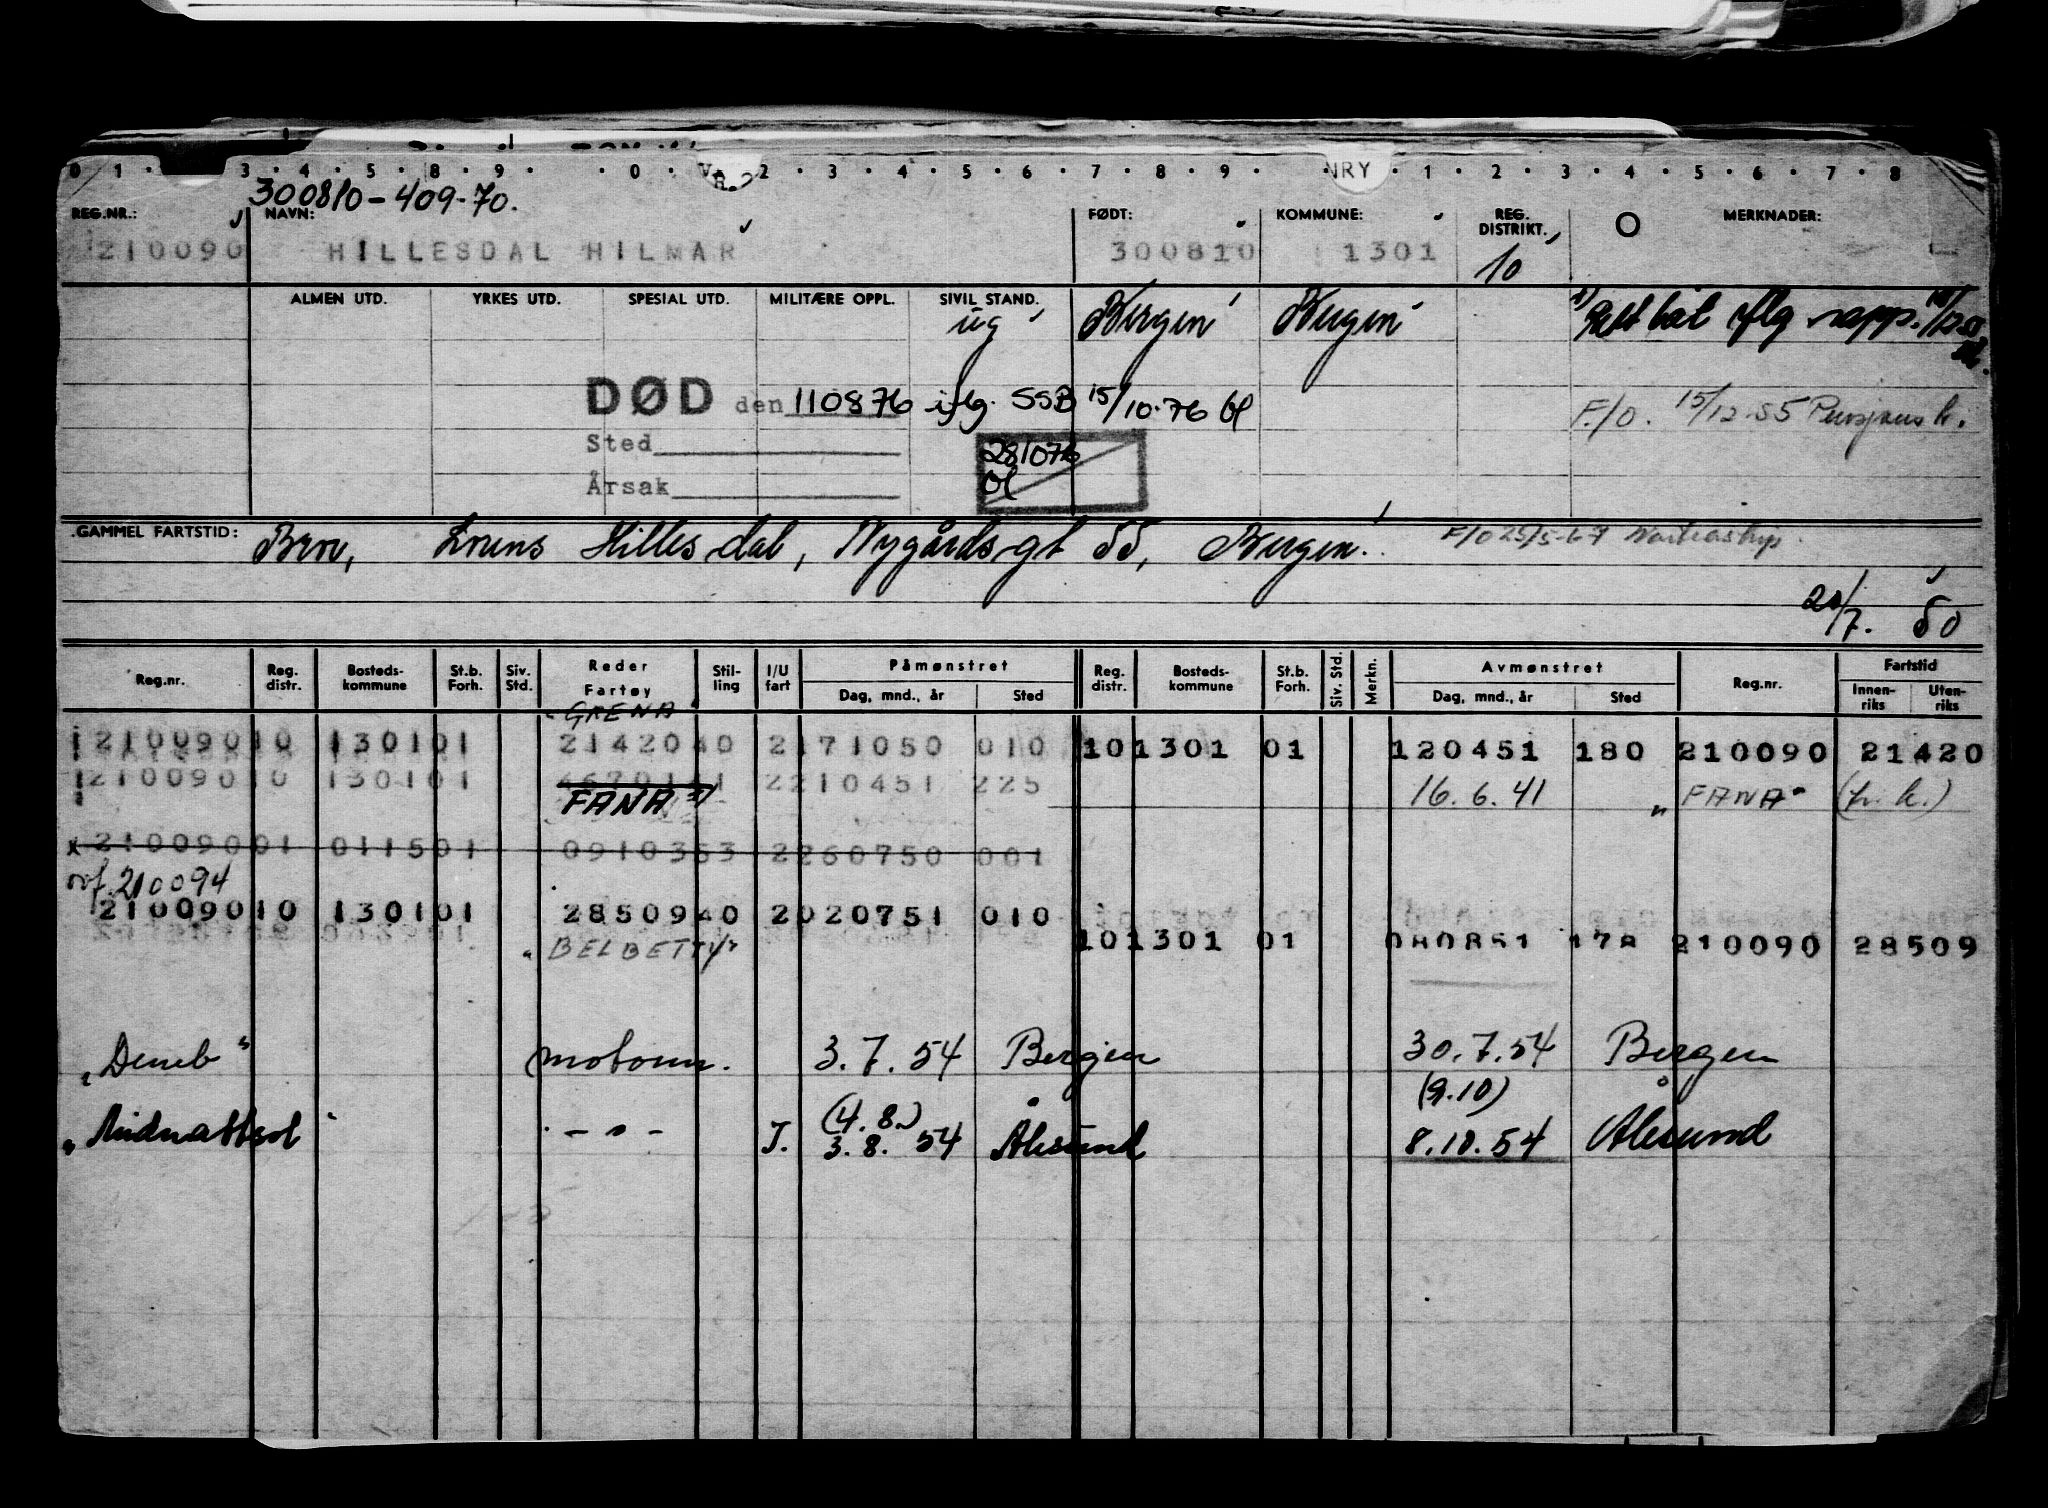 0 1 · 3 · 4 · 5 · 8 · 9 · 0 · 0 · V 2 · 3 · 4 · 5 · 6 · 7 · 8 · 9 · NRY · 1 · 2 · 3 · 4 · 5 · 6 · 7 · 8
300810-409-70.
REG.NR.: NAVN: FØDT: KOMMUNE: REG. DISTRIKT. MERKNADER:
210090 HILLESDAL HILMAR 300810 1301 10
ALMEN UTD. YRKES UTD. SPESIAL UTD. MILITÆRE OPPL. SIVIL STAND.
ug Bergen Bergen
DØD den 110876 iflg. SSB 15/10-76
F/O. 15/12-55
Sted
281076
Årsak
GAMMEL FARTSTID: Bror, Hillesdal, Nygårdsgt 55, Bergen. F/O 25/5-67
20/7. 50
Reg.nr. Reg. distr. Bosteds- kommune St.b. Forh. Siv. Std. Reder Fartøy Stil- ling I/U fart Påmønstret Dag, mnd., år Sted Reg. distr. Bosteds- kommune St.b. Forh. Siv. Std. Merkn. Avmønstret Dag, mnd., år Sted Reg.nr. Fartstid Innen- riks Uten- riks
"GRENA"
21009010 130101 2142040 2171050 010 101301 01 120451 180 210090 21420
21009010 130101 2210451 225 16.6.41 "FANA"
FANA
x 21009001 011501 0910353 2260750 001
210094
21009010 130101 2850940 2020751 010
"BELBETTY" 101301 01 080851 178 210090 28509
"Deneb" motorm. 3.7.54 Bergen 30.7.54 Bergen
(4.8.) (9.10)
"Midnattsol" - " - I. 3.8.54 Ålesund 8.10.54 Ålesund